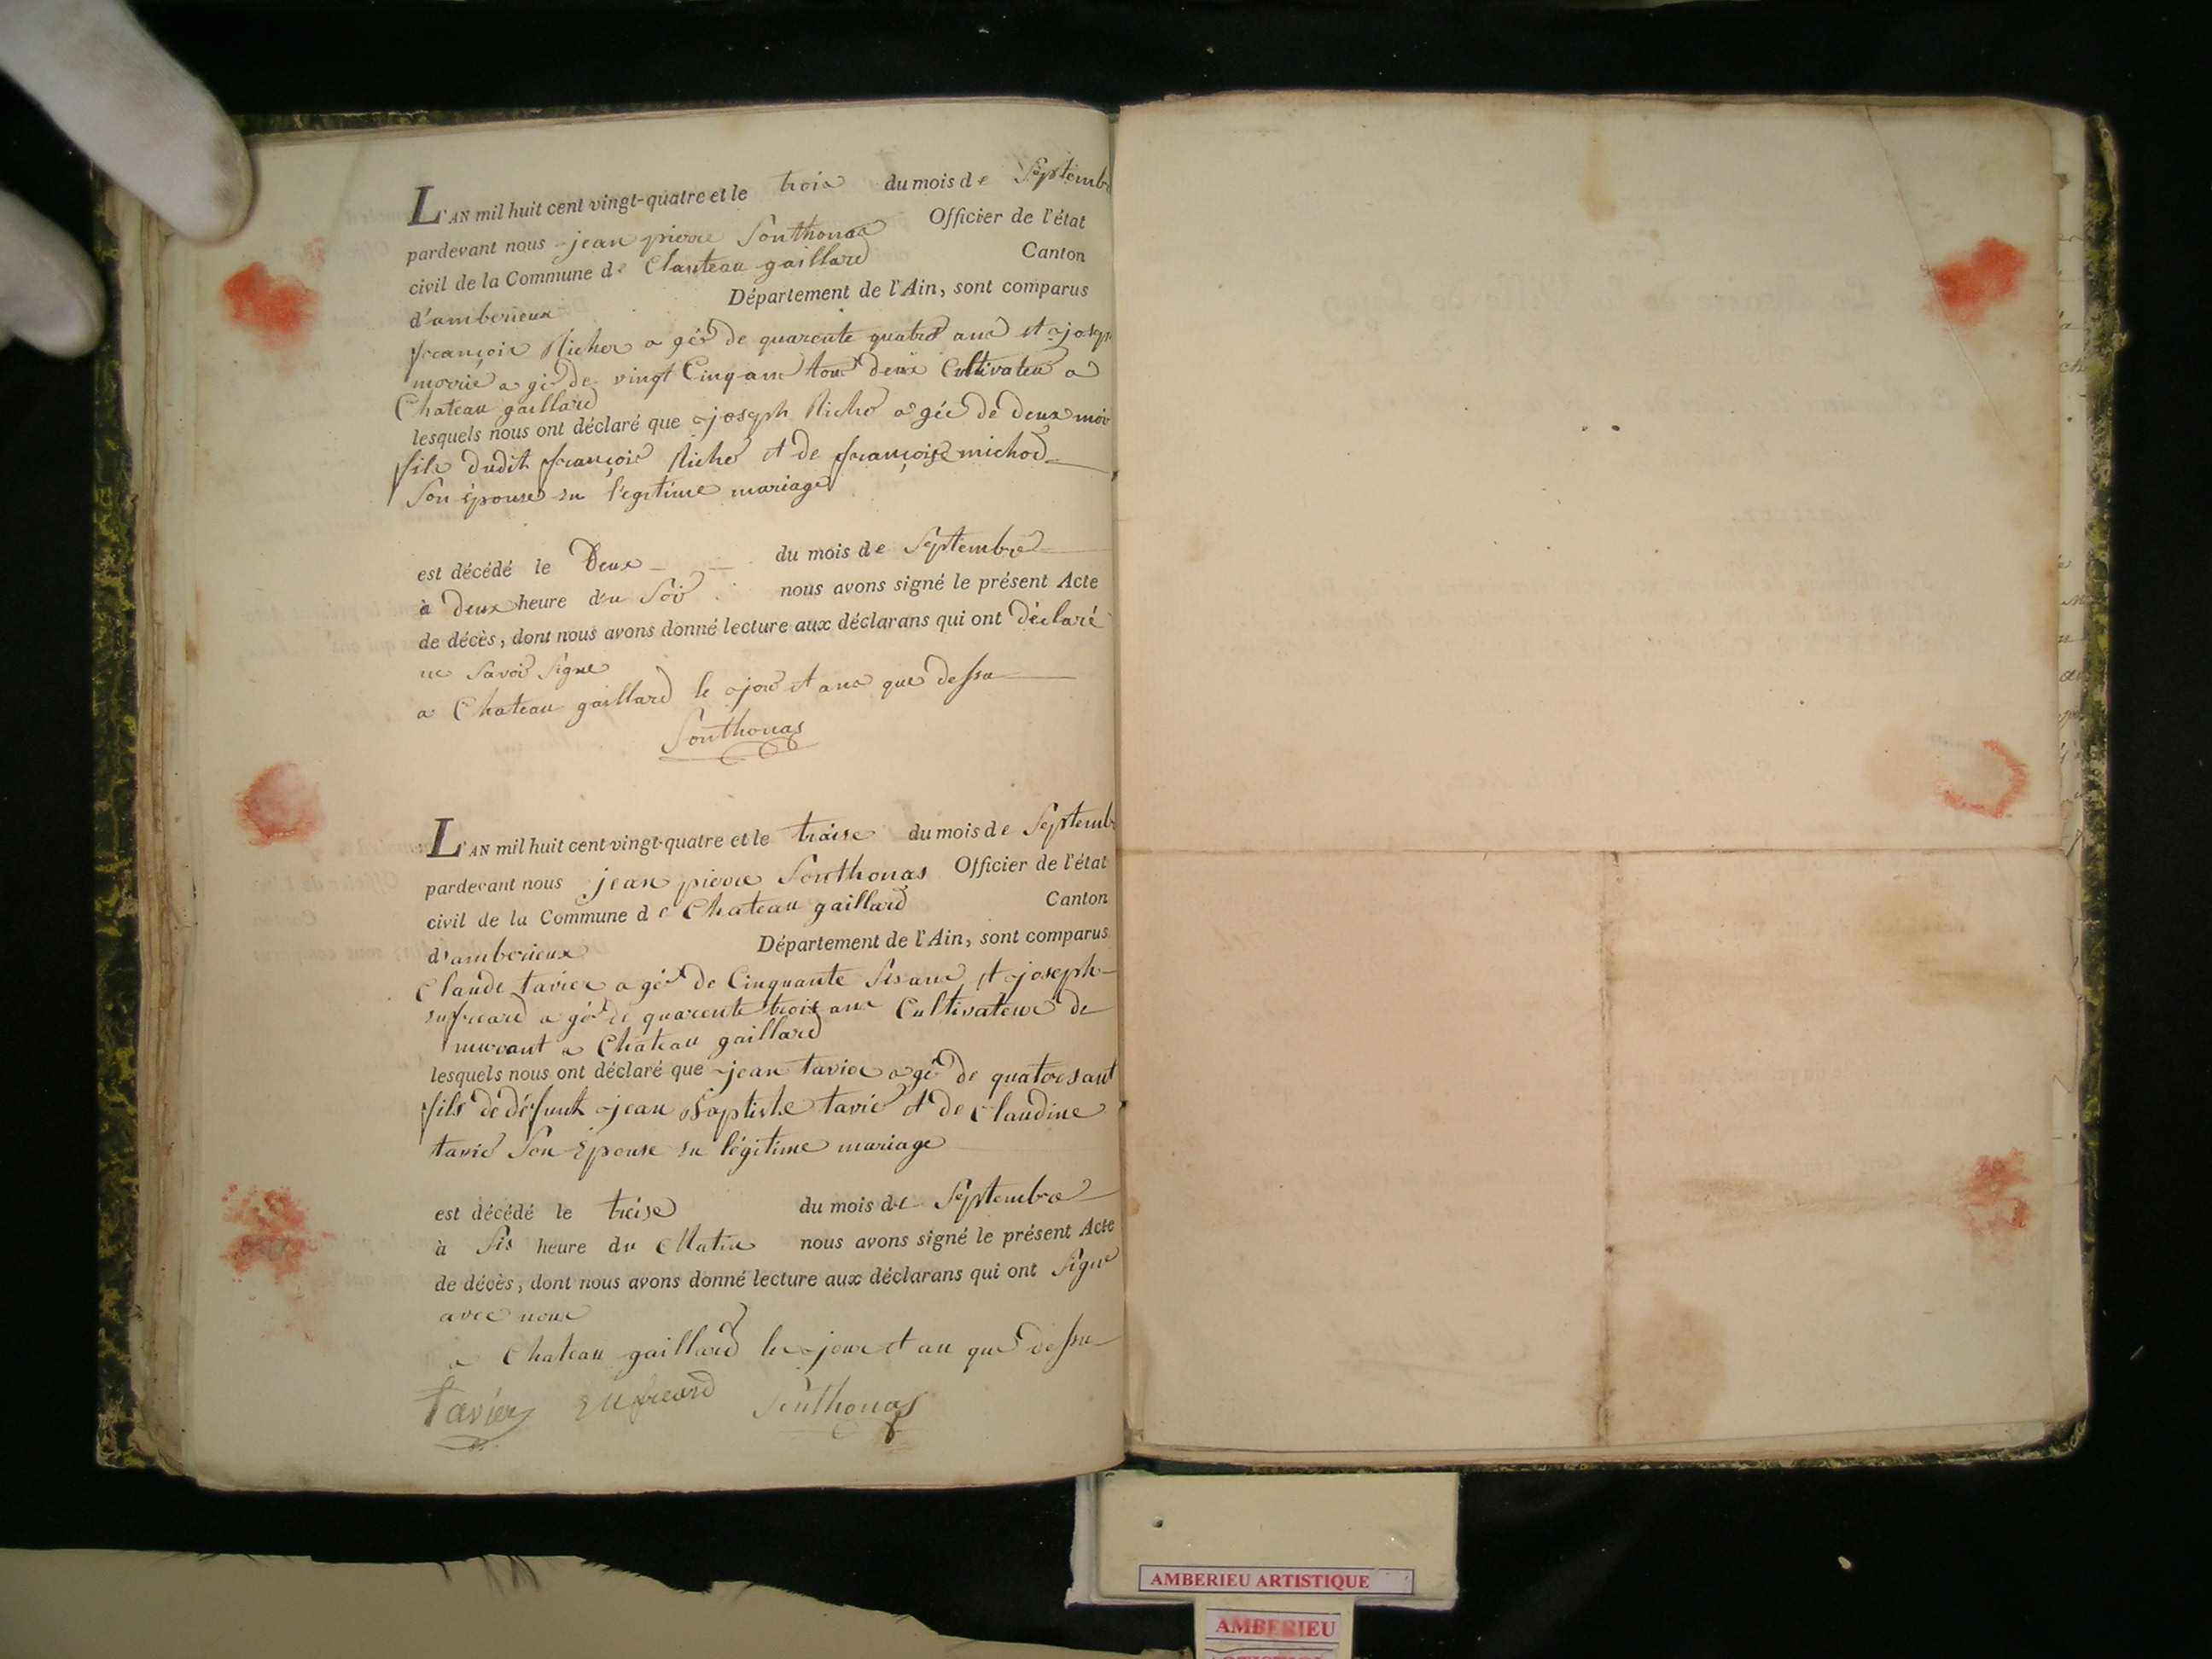 L'AN mil huit cent vingt-quatre et le trois du mois de Septembr
pardevant nous jean pierre Sonthonas Officier de l'état
civil de la Commune de Chauteau gaillard Canton
d'amberieux Département de l'Ain, sont comparus
françois Richer agér de quarente quatre ans et joseph
agé de vingt Cinq ans tous deux Cultivateur a
Chateau gaillard
lesquels nous ont déclaré que joseph Richer agée de deux moi
fils dudit françois Richer et de françoise michod
Son épouse en légitime mariage
est décédé le Deux du mois de Septembre
à Deux heure du Soir nous avons signé le présent Acte
de décès, dont nous avons donné lecture aux déclarans qui ont déclaré
ne Savoir Signe
a Chateau gaillard le jour et ans que dessu
Sonthonas
L'AN mil huit cent vingt-quatre et le traise du mois de Septemb
pardevant nous jean pierre Sonthonas Officier de l'état
civil de la Commune de Chateau gaillard Canton
d'amberieux Département de l'Ain, sont comparus
Claude tavier agér de Cinquante Sis ans et joseph
sufreard agér de quarente trois ans Cultivateur de
murant a Chateau gaillard
lesquels nous ont déclaré que jean tavier agé de quatorsant
fils de défunt jean Baptiste tavier et de Claudine
tavier Son Epouse en légitime mariage
est décédé le treise du mois de Septembre
à Sis heure du Matin nous avons signé le présent Acte
de décès, dont nous avons donné lecture aux déclarans qui ont Signe
avec nous
a Chateau gaillard le jour et an que dessu
tavier sufreard Sonthonas
AMBERIEU ARTISTIQUE
AMBERIEU